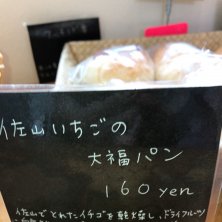 佐山いちごの
大福パン
160yen
佐山でとれたイチゴを乾燥し、ドライフルーツ